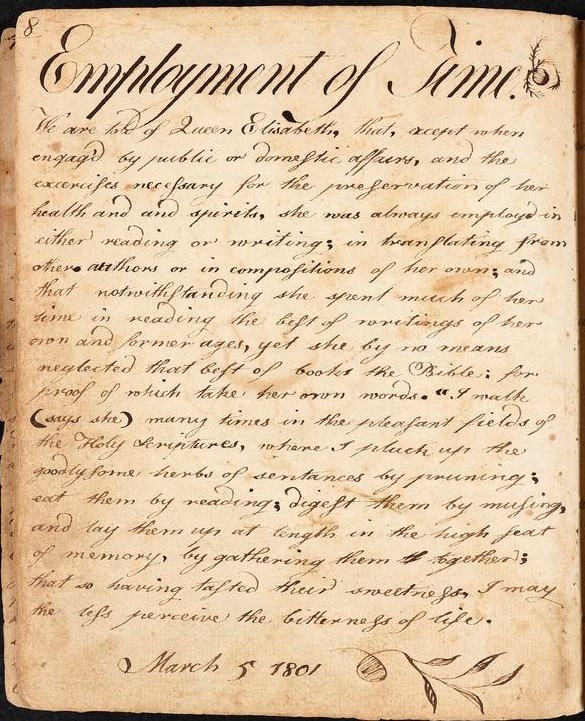 8
Employment of Time.
We are told of Queen Elisabeth, that, except when
engag'd by public or domeſtic affairs, and the
excerciſes neceſsary for the preſervation of her
health and and spirits, she was always employ'd in
either reading or writing; in tranſlating from
other authors or in compoſitions of her own; and
that notwithſtanding she spent much of her
time in reading the beſt of writings of her
own and former ages, yet she by no means
neglected that beſt of books the Bible: for
proof of which take her own words. "I walk
(says she) many times in the pleaſant fields of
the Holy Scriptures, where I pluck up the
goodlyſome herbs of sentances by pruning;
eat them by reading; digeſt them by muſing,
and lay them up at length in the high ſeat
of memory, by gathering them together;
that so having taſted their sweetneſs, I may
the leſs perceive the bitterneſs of life.
March 5 1801